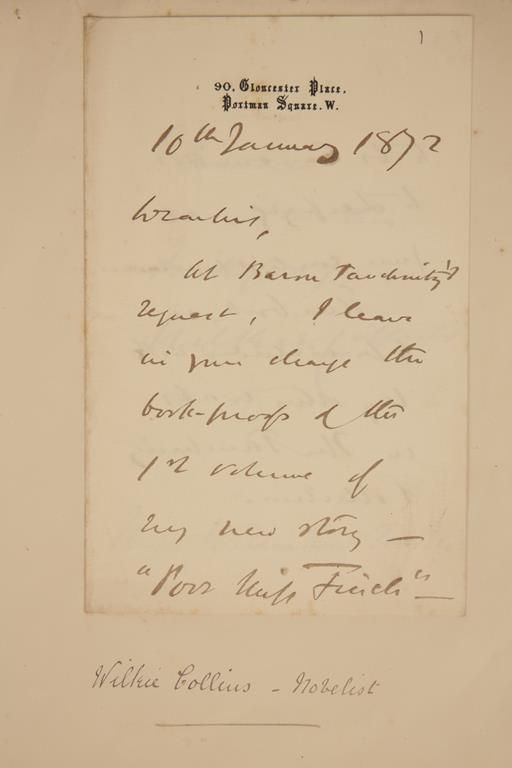 90. Gloucester Place.
Portman Square. W.
10th January 1872
Gentlemen,
At Baron Tauchnitz's
request, I leave
in your charge the
book-proofs of the
1st volume of
my new story —
"Poor Miss Finch" —
Wilkie Collins - Novelist